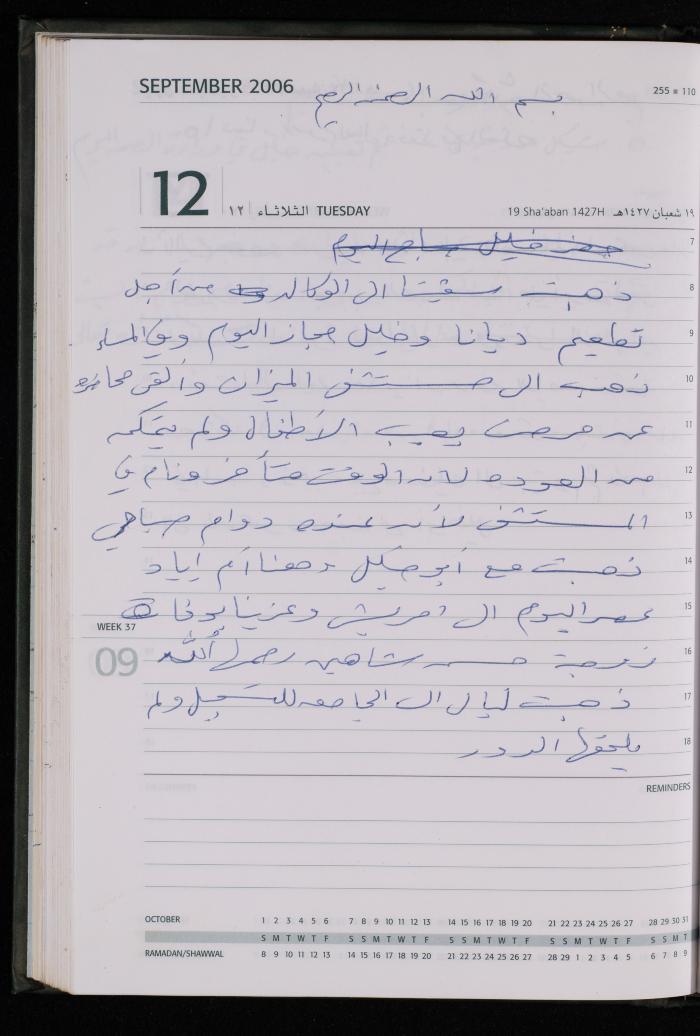 SEPTEMBER 2006
بسم الله الرحمن الرحيم
255 ■ 110
12
١٢ الثلاثاء TUESDAY
19 Sha'aban 1427H ١٩ شعبان ١٤٢٧هـ
7
حضر خليل صباح اليوم
8 ذهبت سقيتا الى الوكاله من أجل
9 تطعيم ديانا وخليل مجاز اليوم وفي المساء
10 ذهب الى مستشفى الميزان وألقى محاضره
11 عن مرض يصيب الأطفال ولم يتمكن
12 من العوده لانه الوقت متأخر ونام في
13 المستشفى لأنه عنده دوام صباحي
14 ذهبت مع أبو خليل وهنا أم اياد
15 عصر اليوم الى وعزينا بوفاة
WEEK 37
09
16 زوجة حسن شاهين رحمها الله
17 ذهبت ليال الى الجامعه للتسجيل ولم
18 يلحقها الدور
REMINDERS
OCTOBER 1 2 3 4 5 6 7 8 9 10 11 12 13 14 15 16 17 18 19 20 21 22 23 24 25 26 27 28 29 30 31
S M T W T F S S M T W T F S S M T W T F S S M T W T F S S M T
RAMADAN/SHAWWAL 8 9 10 11 12 13 14 15 16 17 18 19 20 21 22 23 24 25 26 27 28 29 1 2 3 4 5 6 7 8 9